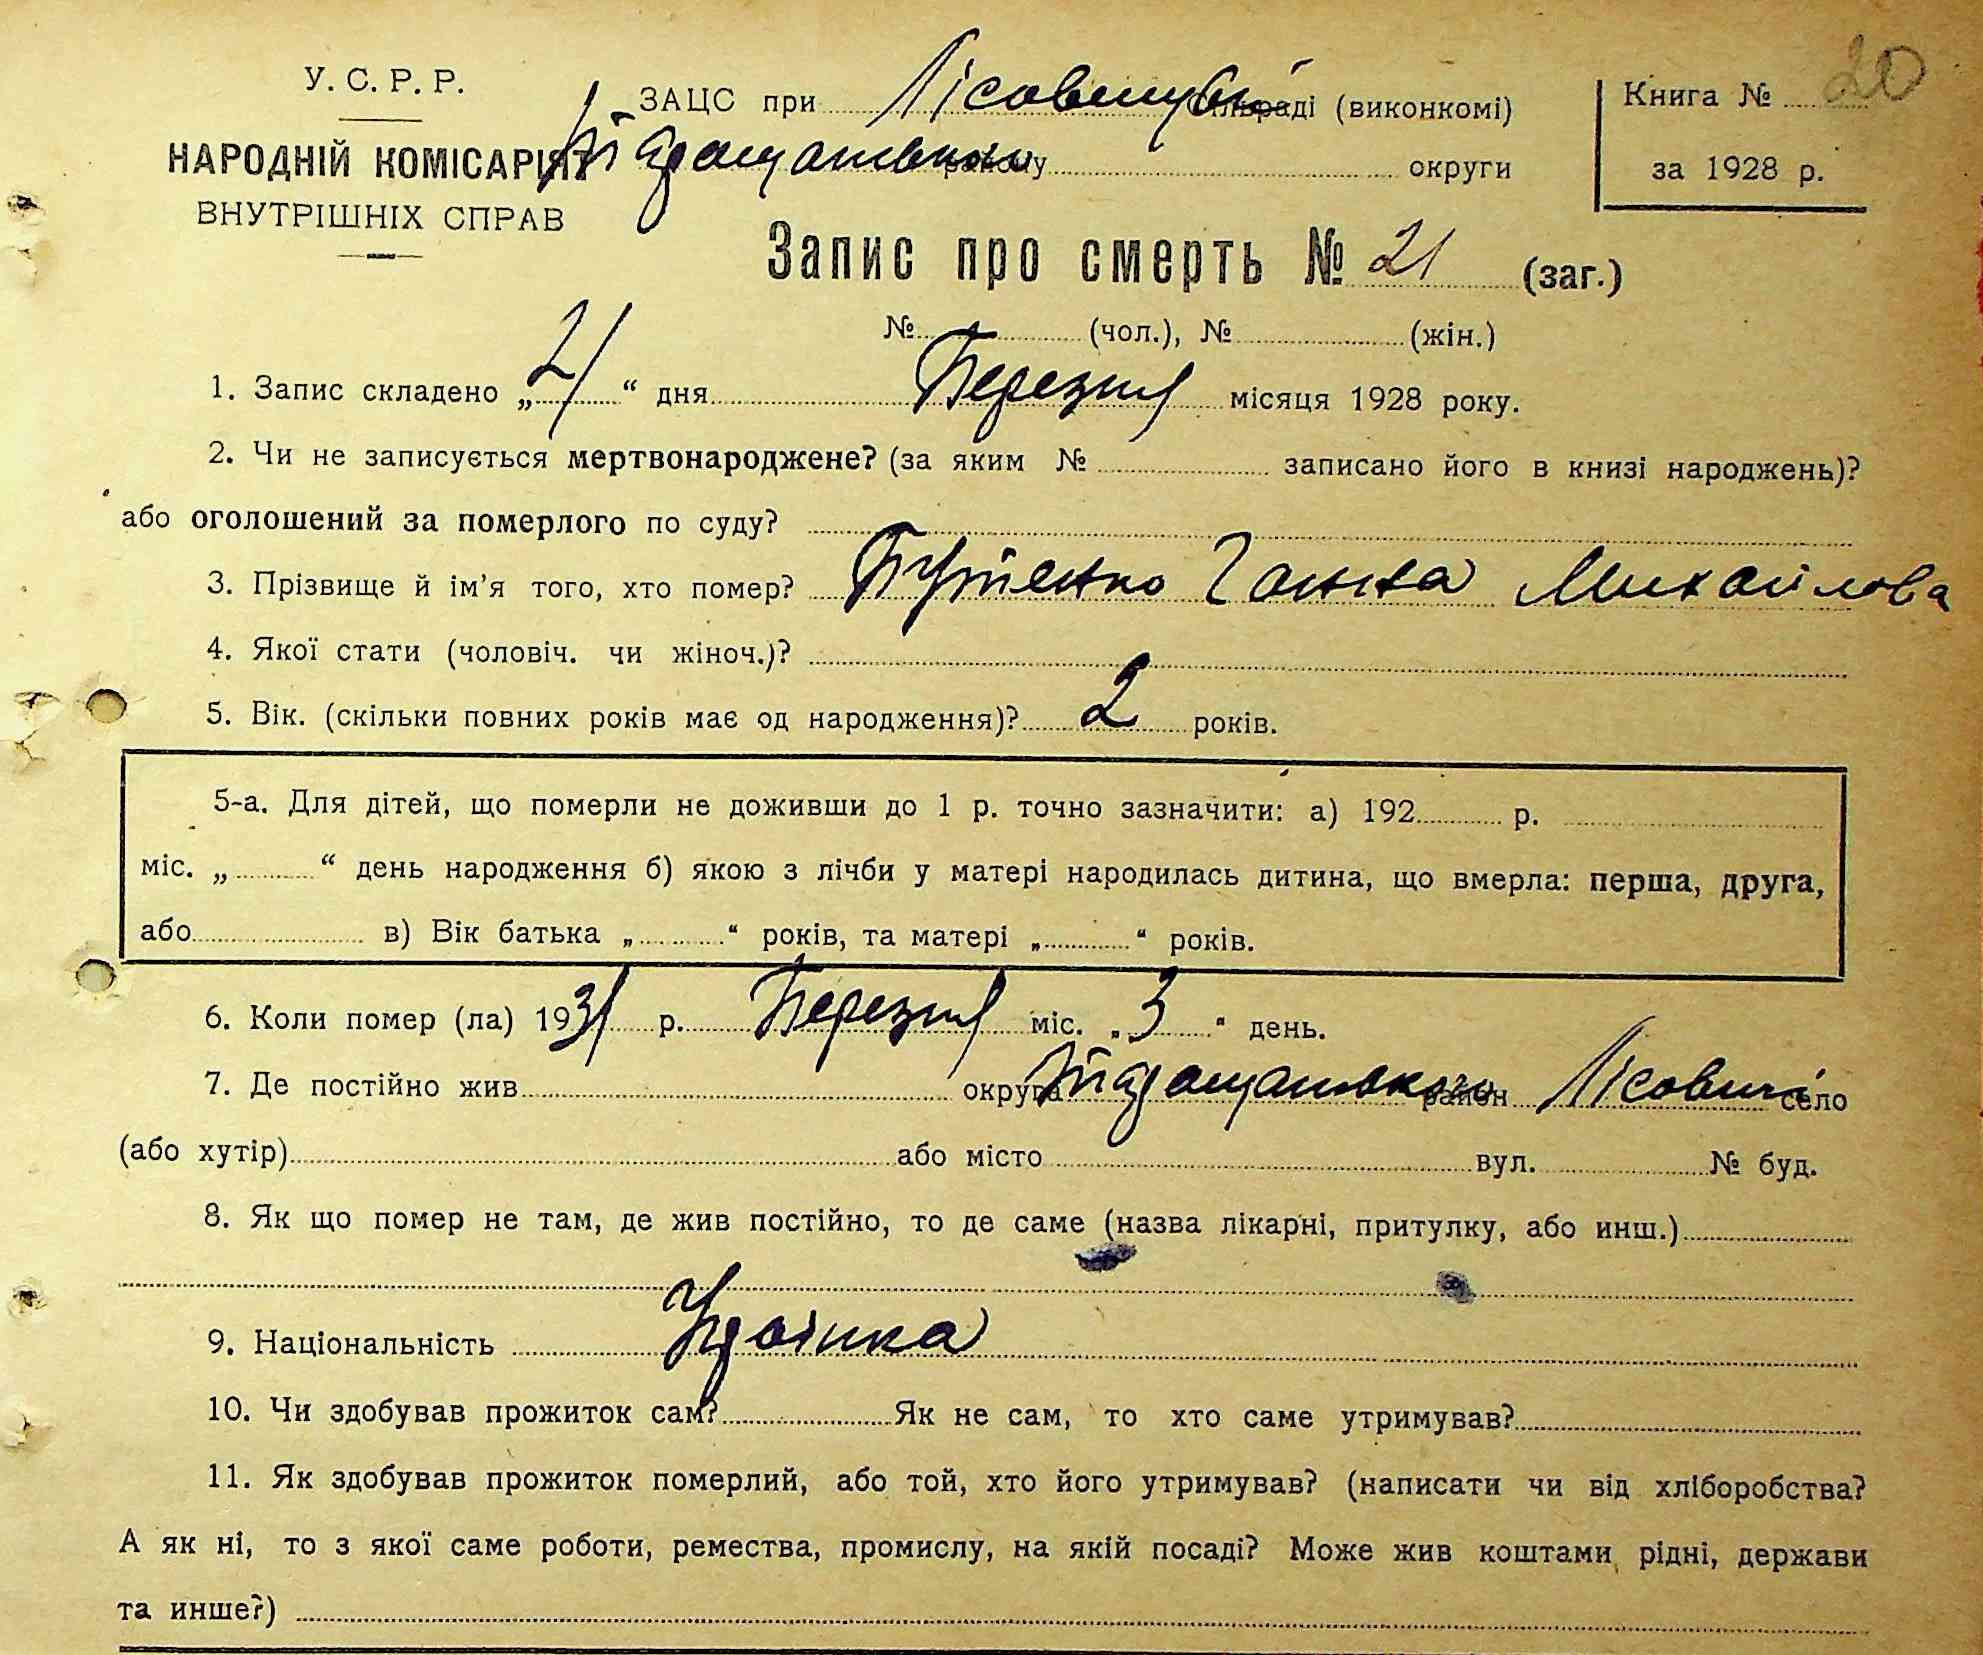 У. С. Р. Р.
НАРОДНІЙ КОМІСАРІЯТ
ВНУТРІШНІХ СПРАВ
ЗАЦС при Лісовицькій сільраді (виконкомі)
району округи
Книга № 20
за 1928 р.
Запис про смерть № 21 (заг.)
№ (чол.), № (жін.)
1. Запис складено „21“ дня Березня місяця 1928 року.
2. Чи не записується мертвонароджене? (за яким № записано його в книзі народжень)?
або оголошений за померлого по суду?
3. Прізвище й ім’я того, хто помер? Ганна Михайлова
4. Якої стати (чоловіч. чи жіноч.)?
5. Вік. (скільки повних років має од народження)? 2 років.
5-а. Для дітей, що померли не доживши до 1 р. точно зазначити: а) 192 р.
міс. „ “ день народження б) якою з лічби у матері народилась дитина, що вмерла: перша, друга,
або в) Вік батька „ “ років, та матері „ “ років.
6. Коли помер (ла) 1931 р. Березня міс. „3“ день.
7. Де постійно жив округа район Лісовичі село
(або хутір) або місто вул. № буд.
8. Як що помер не там, де жив постійно, то де саме (назва лікарні, притулку, або инш.)
9. Національність Україінка
10. Чи здобував прожиток сам? Як не сам, то хто саме утримував?
11. Як здобував прожиток померлий, або той, хто його утримував? (написати чи від хліборобства?
А як ні, то з якої саме роботи, ремества, промислу, на якій посаді? Може жив коштами рідні, держави
та инше?)